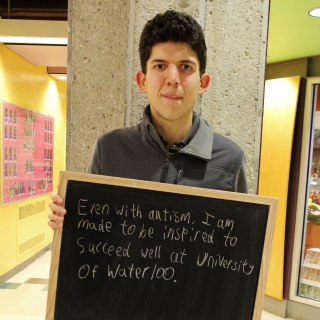 Even with autism, I am
made to be inspired to
Succeed well at University
Of Waterloo.